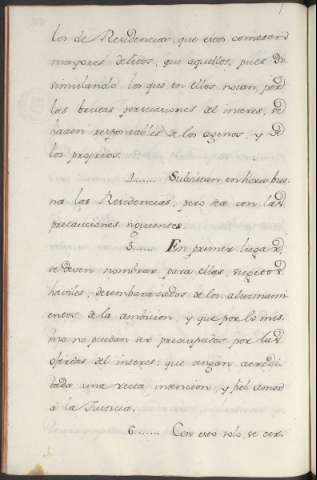 los de Residencia, que estos cometen
mayores delitos, que aquellos, pues di-
simulando los que en ellos notan, por
las brutas percusiones del interes, se
hacen responsables de los agenos, y de
los proprios.
Subsistan en hora bue-
na las Residencias, pero sea con las
precauciones siguientes
5...... En primer lugar
se deven nombrar para ellas, sugetos
haviles, desembarazados de los alucinam-
ientos de la ambicion, y que por lo mis-
mo no puedan ser preocupados por las
ofertas del interes: que tengan acredi-
tada una recta intencion, y fiel amor
à la Justicia.
6...... Con esto solo, se cer-